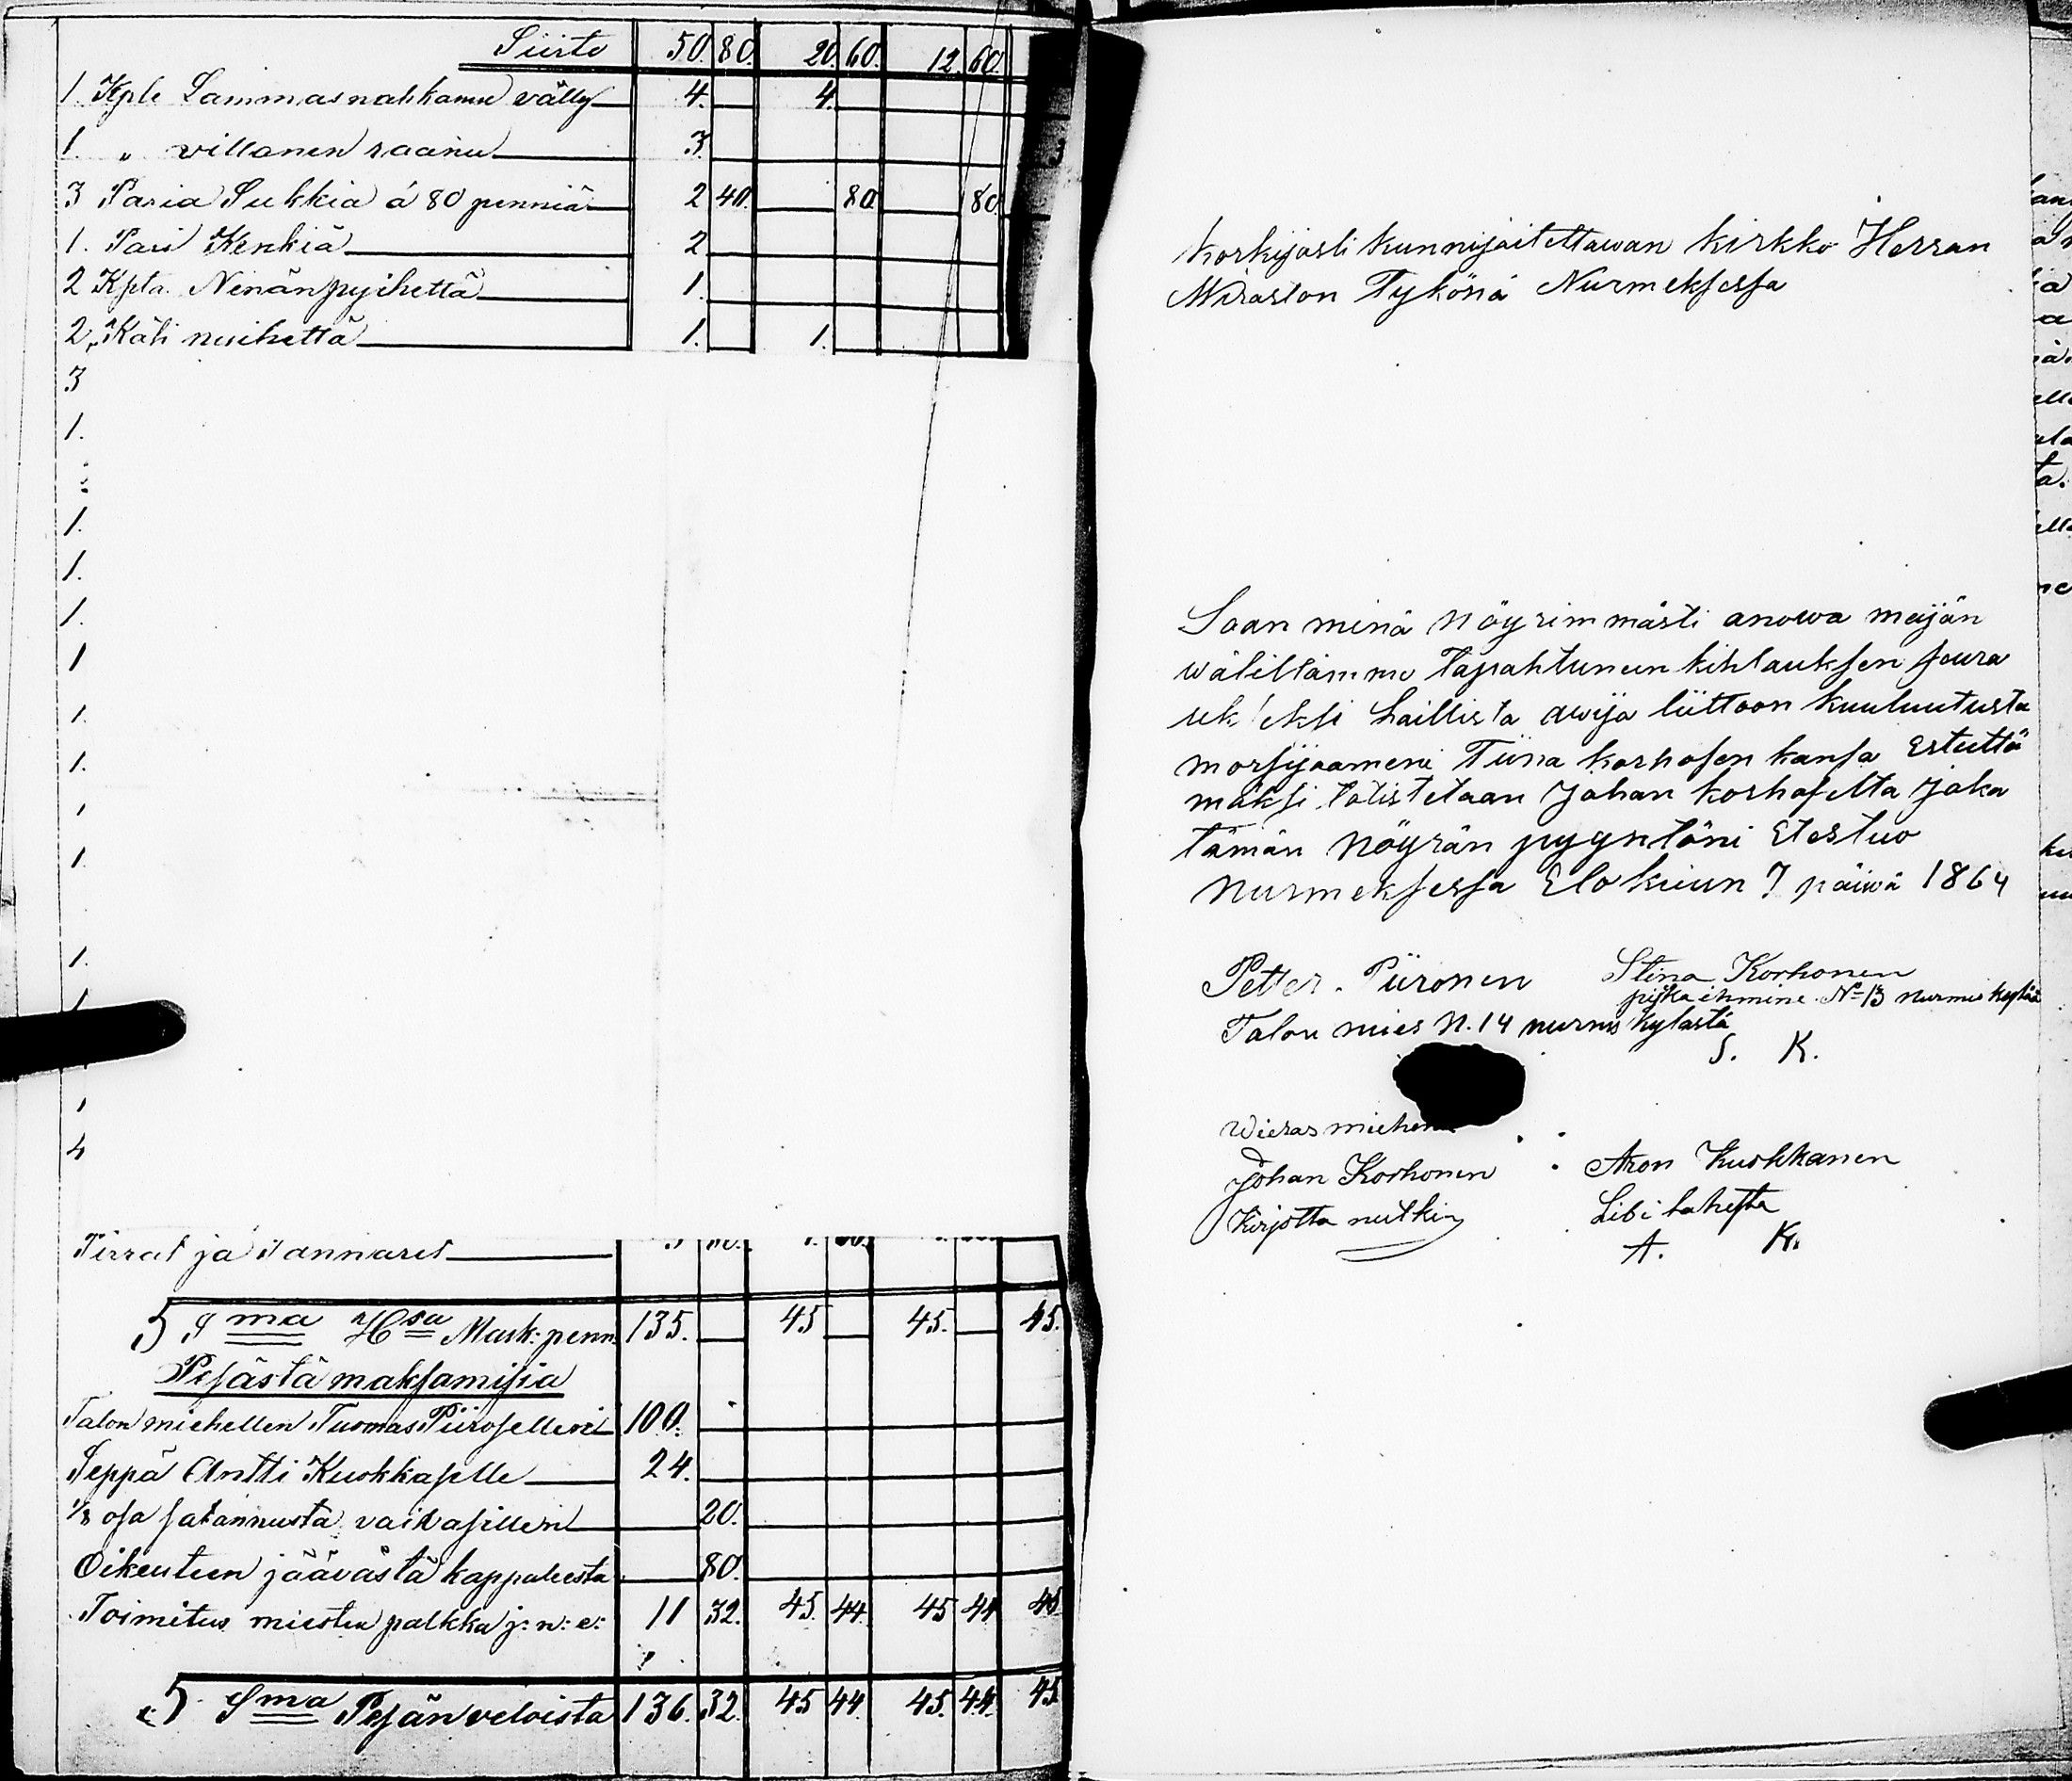 Siirto 50. 80. 20. 60. 12. 60.
1. Kple Lammasnahkanen välly 4. 4.
1. " villanen raanu 3.
3 Paria Sukkia á 80 penniä 2 40. 80. 80.
1. Pari Kenkiä 2
2 Kpta. Nenänpyihettä 1.
2 " Käti nuihetta 1. 1.
3
1.
1.
1.
1.
1
1.
1.
1
1.
1.
1
4
Pirrat ja
5 Sma Mark: penn. 135. 45 45. 45.
Pesästä maksamisia
Talon miehellen Tuomas Piiroselleni 100.
Seppä Antti Kuokkaselle 24.
1/8 osa satannusta vaivasillen 20.
Oikeuteen jäävästä kappaleesta 80.
Toimitus miesten palkka j: n: e: 11 32. 45. 44. 45 44 45
5 Sma Pesän veloista 136. 32. 45 44 45. 44. 45
korkijasti kunnijaitettawan kirkko Herran
Wiraston Tykönä Nurmeksessa
Saan minä Nöyrimmästi anowa meijän
wälillämme Tapahtuneen kihlauksen seura
ukseksi Laillista awijo liittoon kuuluutusta
morsijaameni Tiina korhosen kansa Estuttä
mäksi totistetaan Johan korhoselta Joka
tämän Nöyrän pyyntöni Etestuo
Nurmeksessa Elokuun 7 päiwä 1864
Petter. Piironen Stina Korhonen
piika ihmine No 13 nurmes kylää
Talon mies N. 14 nurmes kylästä
S. K.
Wieras miehen
Johan Korhonen Aron Kuokkanen
Kirjotta nutkin Libi lahesta
A. K.